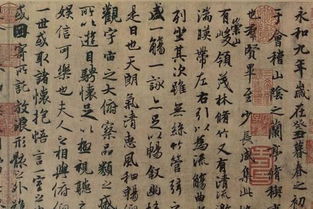 永和九年歲在癸丑暮春之初
于會稽山陰之蘭亭脩稧事
也羣賢畢至少長咸集此
有崇山峻領茂林脩竹又有清流激
湍暎帶左右引以為流觴曲
列坐其次雖無絲竹管弦
盛一觴一詠亦足以暢敘幽
是日也天朗氣清惠風和暢
觀宇宙之大俯察品類之盛
所以遊目騁懷足以極視聽
娛信可樂也夫人之相與俯仰
一世或取諸懷抱悟言一室之
或因寄所託放浪形骸之外